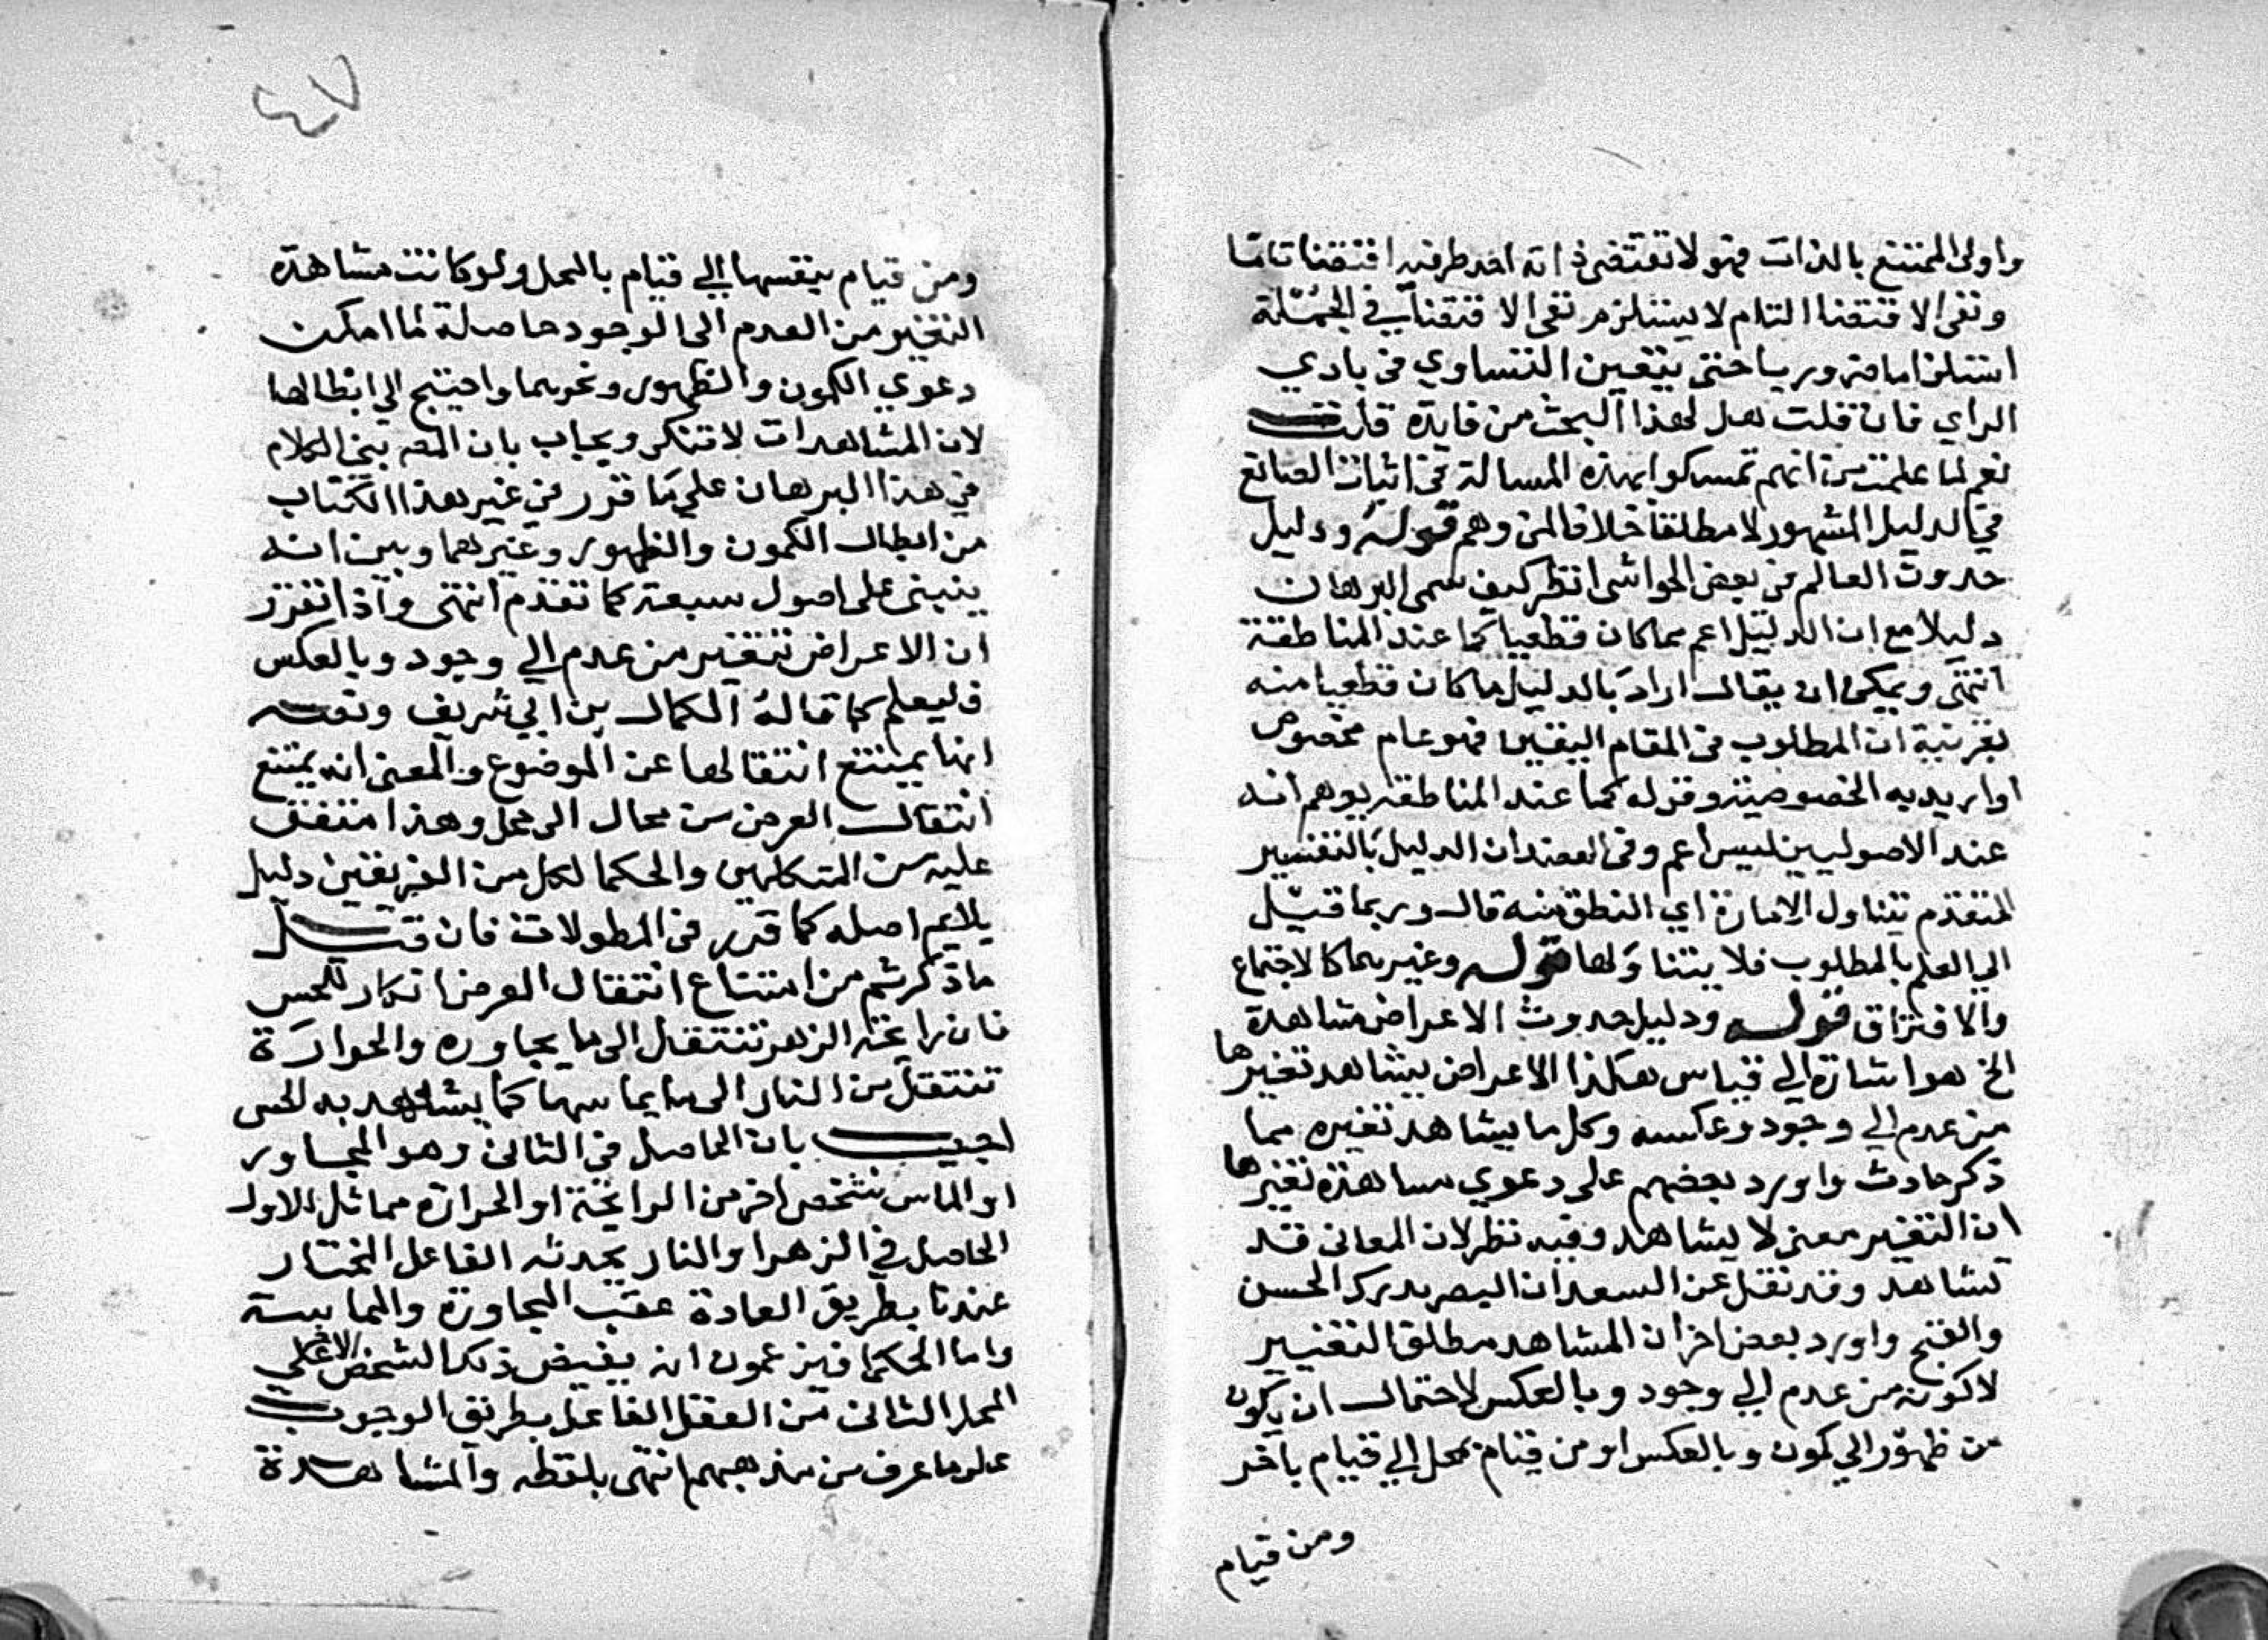 واولى الممتنع بالذات فهو لا تقتضى ذاته احد طرفيه اقتضا تاما
ونفى الاقتضا التام لا يستلزم نفى الاقتضا في الجملة
استلزاما ضروريا حتى يتعين التساوي في بادي
الراي فان قلت هل لهذا البحث من فايدة قلت
نعم لما علمت من انهم تمسكوا بهذه المسالة في اثبات الصانع
في الدليل المشهور لا مطلقا خلافا لمن وهم قوله ودليل
حدوث العالم في بعض الحواشي انظر كيف سمى البرهان
دليلا مع ان الدليل اعم مما كان قطعيا كما عند المناطقة
انتهى ويمكن ان يقال اراد بالدليل ما كان قطعيا منه
بقرينة ان المطلوب في المقام اليقين فهو عام مخصوص
او اريد به الخصوص وقوله كما عند المناطقة يوهم انه
عند الاصوليين ليس اعم وفي العضد ان الدليل بالتفسير
المتقدم يتناول الامارة اي الظني منه قال وربما قيل
الى العلم بالمطلوب فلا يتناولها قوله وغيرهما كالاجتماع
والافتراق قوله ودليل حدوث الاعراض مشاهدة
الخ هو اشارة الي قياس هكذا الاعراض يشاهد تغيرها
من عدم الي وجود وعكسه وكل ما يشاهد تغيره مما
ذكر حادث واورد بعضهم على دعوي مشاهدة تغيرها
ان التغير معنى لا يشاهد وفيه نظر لان المعاني قد
تشاهد وقد نقل عن السعد ان البصر يدرك الحسن
والقبح واورد بعض اخر ان المشاهد مطلق التغيير
لا كونه من عدم الي وجود وبالعكس لاحتمال ان يكون
من ظهور الي كمون وبالعكس او من قيام بمحل الي قيام باخر
ومن قيام
٤٧
ومن قيام بنفسها الي قيام بالمحل ولو كانت مشاهدة
التغير من العدم الى الوجود حاصلة لما امكن
دعوي الكمون والظهور ونحوهما واحتيج الى ابطالها
لان المشاهدات لا تنكر ويجاب بان المص بنى الكلام
في هذا البرهان على ما قرر في غير هذا الكتاب
من ابطال الكمون والظهور وغيرهما وبين انه
ينبني على اصول سبعة كما تقدم انتهى واذا تقرر
ان الاعراض تتغير من عدم الي وجود وبالعكس
فليعلم كما قاله الكمال بن ابي شريف ونصه
انها يمتنع انتقالها عن الموضوع والمعنى انه يمتنع
انتقال العرض من محال الى محل وهذا متفق
عليه من المتكلمين والحكما لكل من الفريقين دليل
يلايم اصله كما قرر في المطولات فان قيل
ما ذكرتم من امتناع انتقال العرض انكار للحس
فان رايحة الزهر تنتقل الى ما يجاوره والحرارة
تنتقل من النار الى ما يماسها كما يشاهد به الحس
اجيب بان الحاصل في الثاني وهو المجاور
او المماس شخص اخر من الرايحة او الحرارة مماثل للاول
الحاصل في الزهر او النار يحدثه الفاعل المختار
عندنا بطريق العادة عقب المجاورة والمماسة
واما الحكما فيزعمون انه يفيض ذلك الشخص الاخر على
المحل الثاني من العقل الفاعل بطريق الوجوب
على ما عرف من مذهبهم انتهى بلفظه والمشاهدة